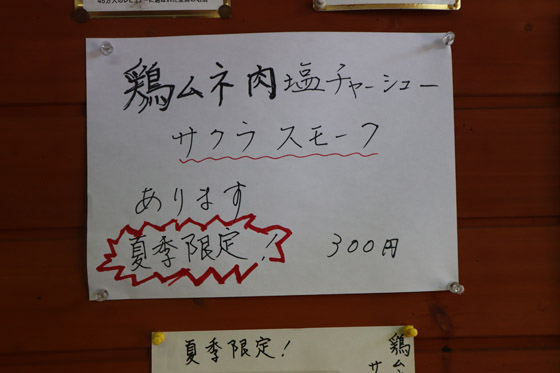 鶏ムネ肉塩チャーシュー
サクラスモーク
あります
夏季限定!
300円
夏季限定!
鶏ム
サ